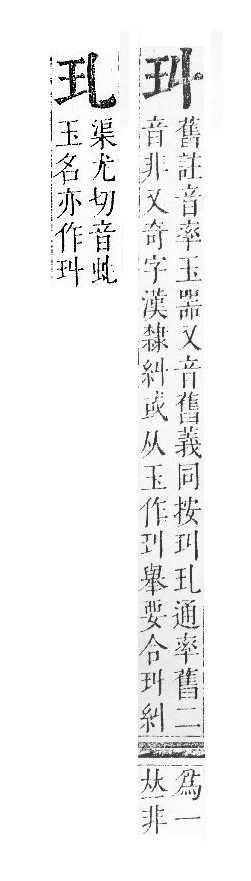 玌
舊註音率玉器又音舊義同按玌玌通率舊二
音非又奇字漢隸糾或从玉作玌舉要合玌糾
爲一
𠀤非
玌
渠尤切音虯
玉名亦作玌